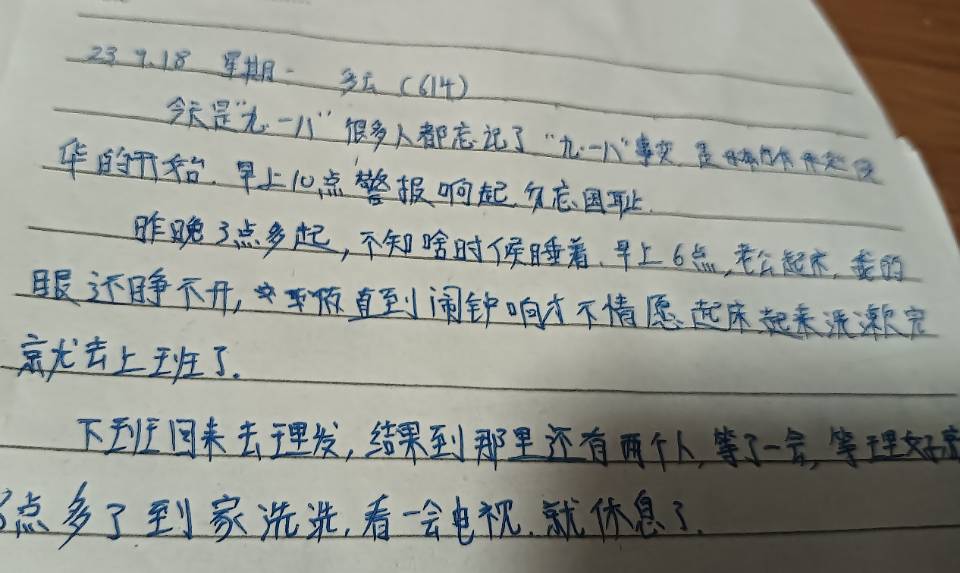 23 9.18 星期一 多云 (614)
今天是"九·一八"很多人都忘记了"九·一八"事变 是日本 侵
华的开始. 早上10点警报响起, 勿忘国耻.
昨晚3点多起, 不知啥时候睡着. 早上6点, 老公起床, 我的
眼还睁不开, 直到闹钟响才不情愿起床. 起来洗漱完
就去上班了.
下班回来去理发, 结果到那里还有两个人, 等了一会, 等理好就
点多了到家洗洗, 看一会电视, 就休息了.